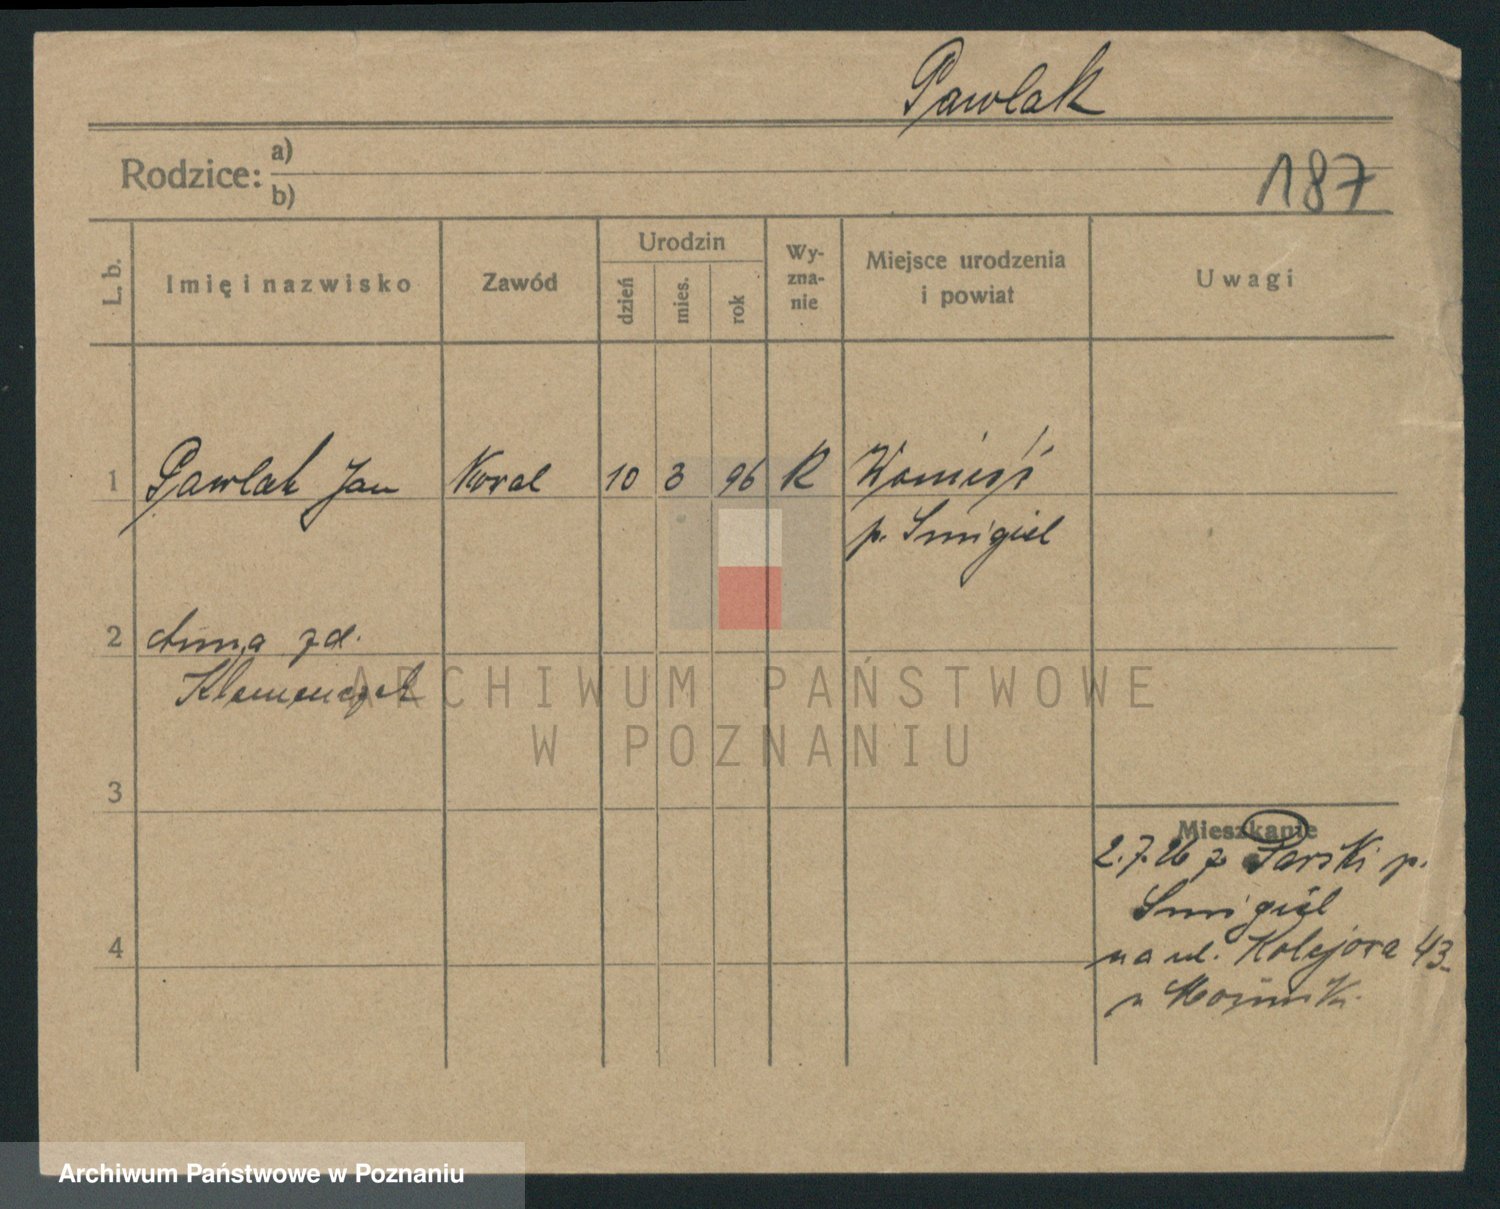 Pawlak
Rodzice: a)
b)
187
L. b. Imię i nazwisko Zawód Urodzin dzień mies. rok Wy-zna-nie Miejsce urodzenia i powiat Uwagi
1 Pawlak Jan Koval 10 3 96 R
p. Smigiel
2 Anna zd.
Klemenczak
ARCHIWUM PAŃSTWOWE
W POZNANIU
3
Mieszkanie
2.7.26 z Parski p.
Smigiel
4 na ul. Kolejova 43
Archiwum Państwowe w Poznaniu